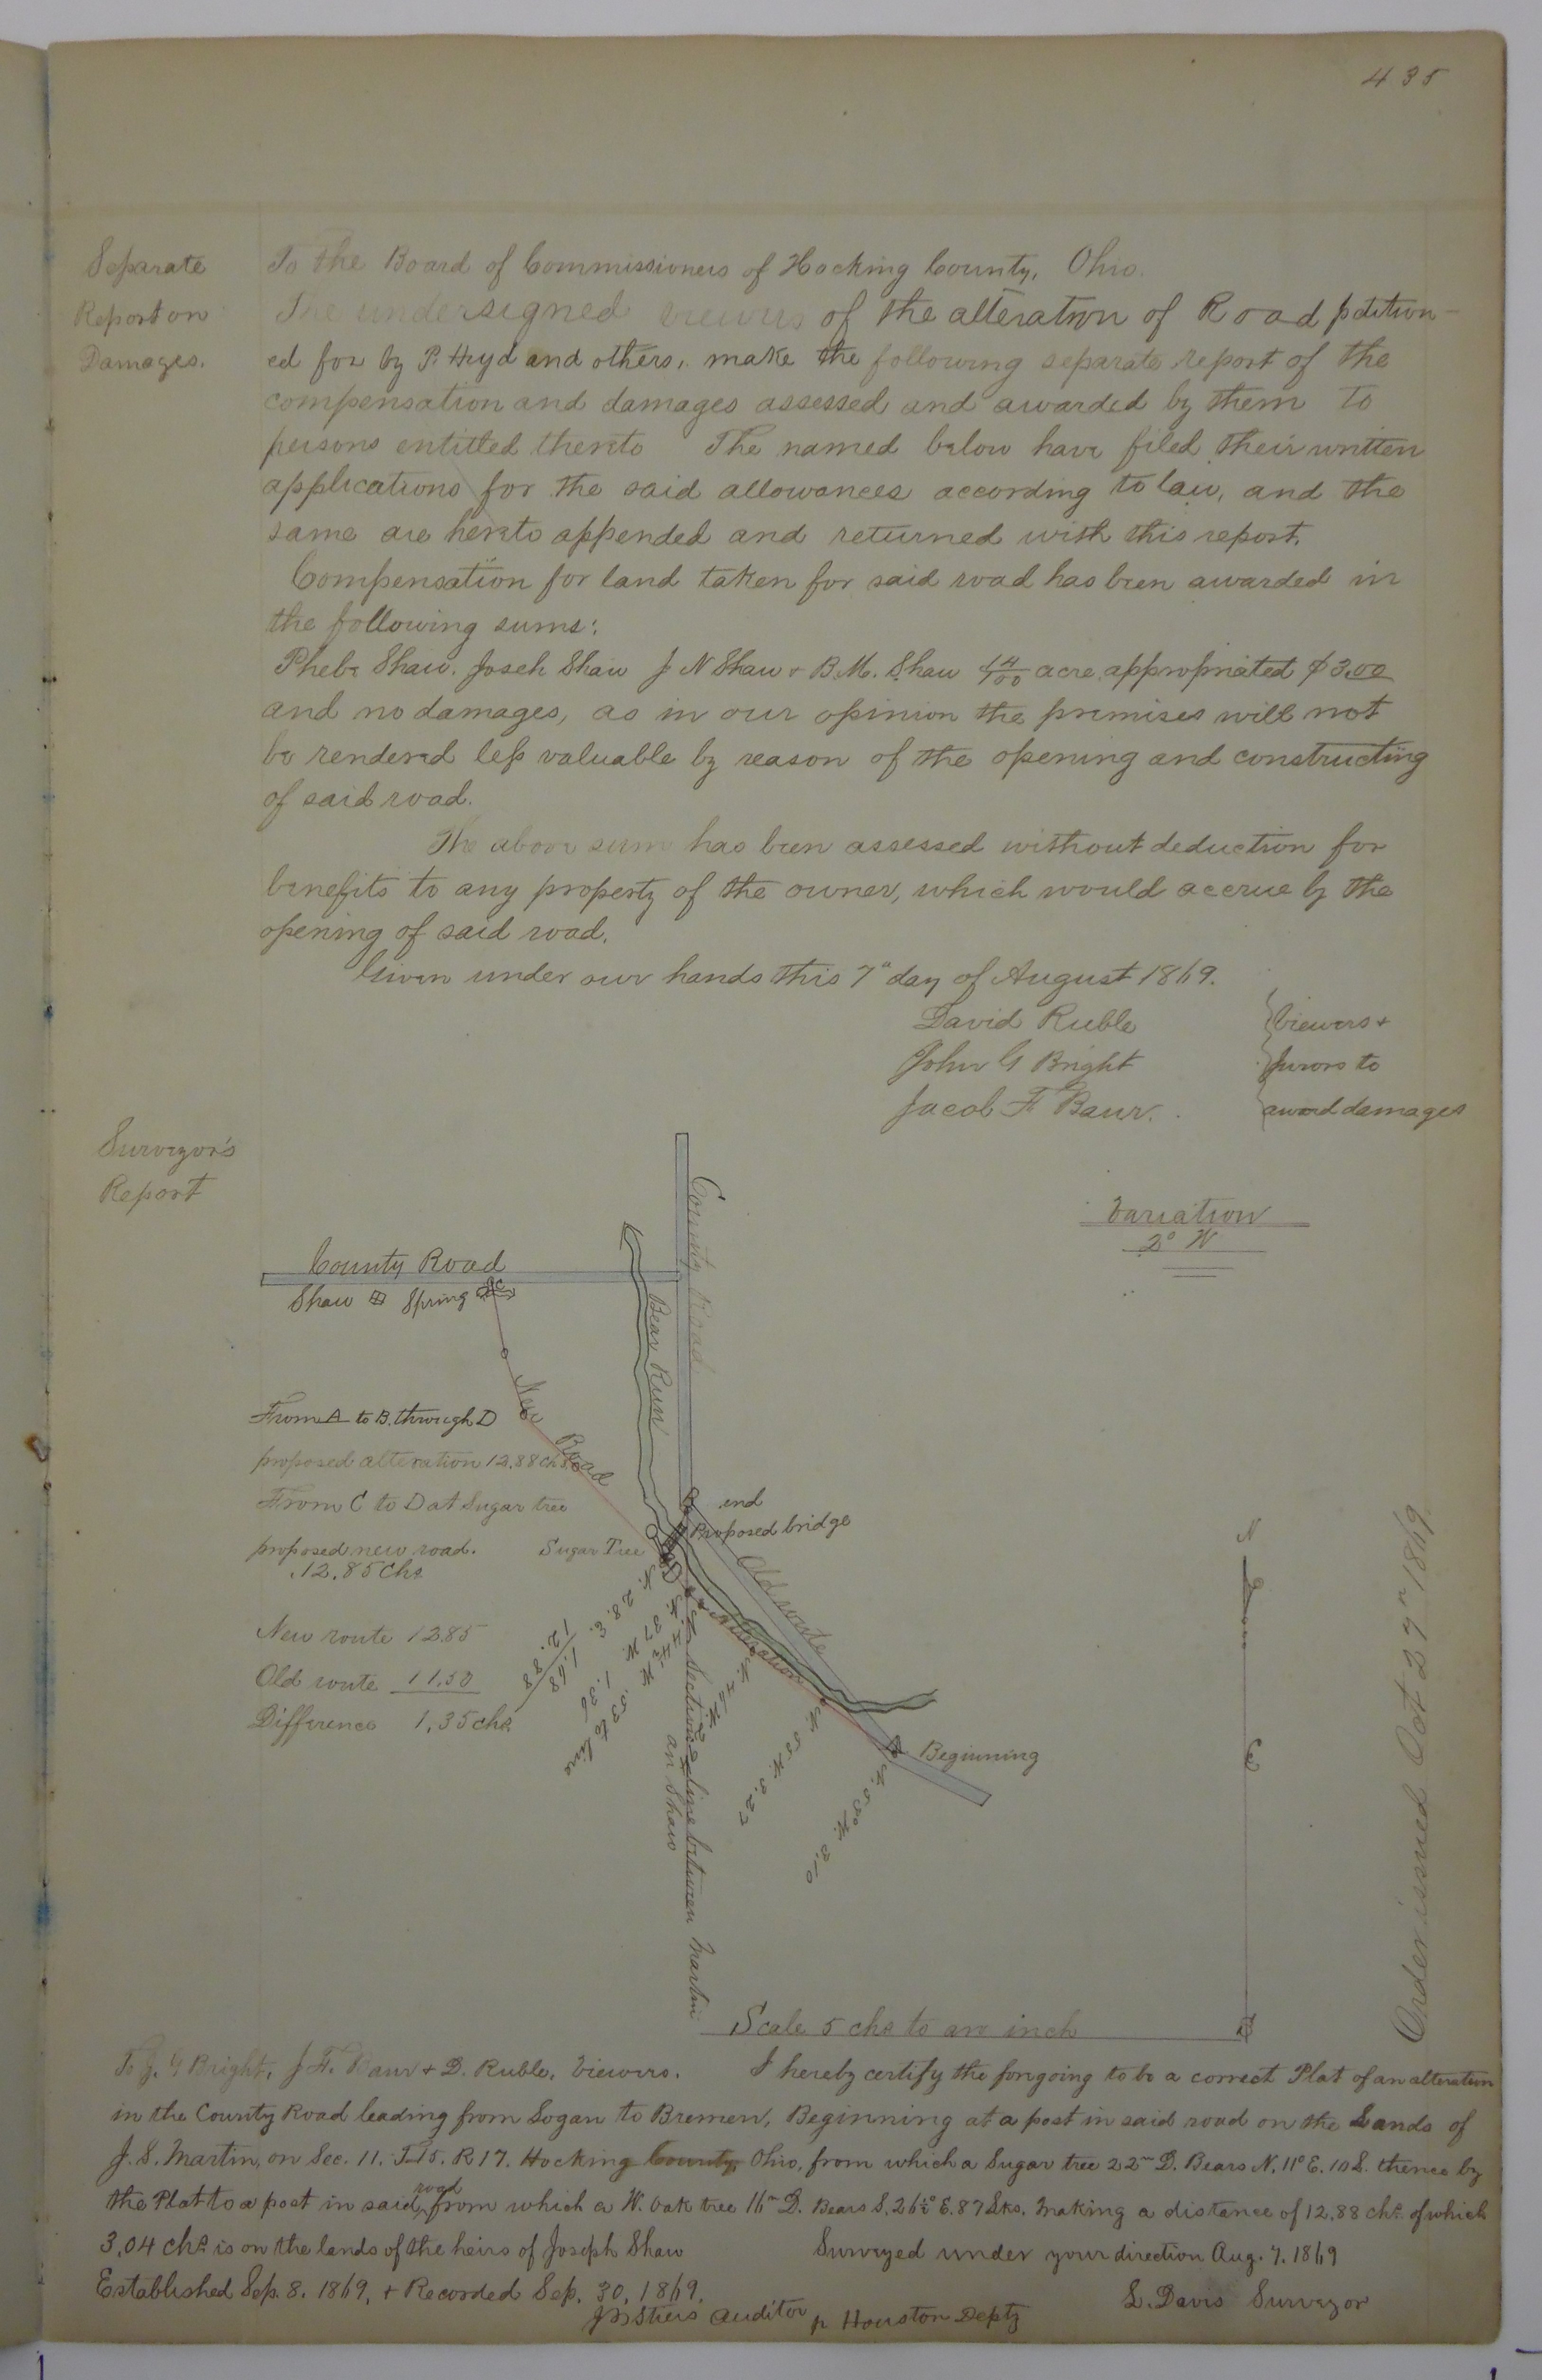 435
Separate
Report on
Damages.
To the Board of Commissioners of Hocking County, Ohio.
The undersigned viewers of the alteration of Road petition-
ed for by P. Heyd and others, make the following separate report of the
compensation and damages assessed and awarded by them to
persons entitled thereto The named below have filed their written
applications for the said allowances according to law, and the
same are hereto appended and returned with this report.
Compensation for land taken for said road has been awarded in
the following sums:
Phebe Shaw. Joseh Shaw J N Shaw + B.M. Shaw acre appropriated $3.00
and no damages, as in our opinion the premises will not
be rendered less valuable by reason of the opening and constructing
of said road.
The above sum has been assessed without deduction for
benefits to any property of the owner, which would accrue by the
opening of said road.
Given under our hands this 7" day of August 1869.
David Ruble
John G Bright
Jacob F Baur.
Viewers +
Jurors to
award damages
Surveyor's
Report
Variation
2° W
County Road
County Road
Shaw Spring C
Bear Run
New Road
From A to B. through D
proposed alteration 12.88 chs
From C to D at Sugar tree
proposed new road.
.12.85 Chs
Sugar Tree
B end
Proposed bridge
D
Old route
Alteration
New route 12.85
Old route 11.50
Difference 1.35 chs.
N. 28. E. 1.68
12.88
N. 37 W. 1.36
N. 44½ W .53 to line
N. 44 W.
N. 55 W. 3.27
N. 53° W. 2.10
A Beginning
Section line between Martin
an Shaw
N
Scale 5 chs to an inch
Order issued Oct 27" 1869.
To J. G Bright, J F. Baur + D. Ruble, Viewers. I hereby certify the forgoing to be a correct Plat of an alteration
in the County Road leading from Logan to Bremen, Beginning at a post in said road on the Lands of
J. S. Martin, on Sec. 11. T 15. R 17. Hocking County, Ohio, from which a Sugar tree 22" D. Bears N. 11° E. 10 L. thence by
the Plat to a post in said road from which a W. oak tree 16" D. Bears S. 26½° E. 87 Lks. Making a distance of 12.88 chs. of which
3.04 chs. is on the lands of the heirs of Joseph Shaw Surveyed under your direction Aug. 7. 1869
Established Sep. 8. 1869, + Recorded Sep. 30. 1869.
L. Davis Surveyor
Auditor p Houston Depty